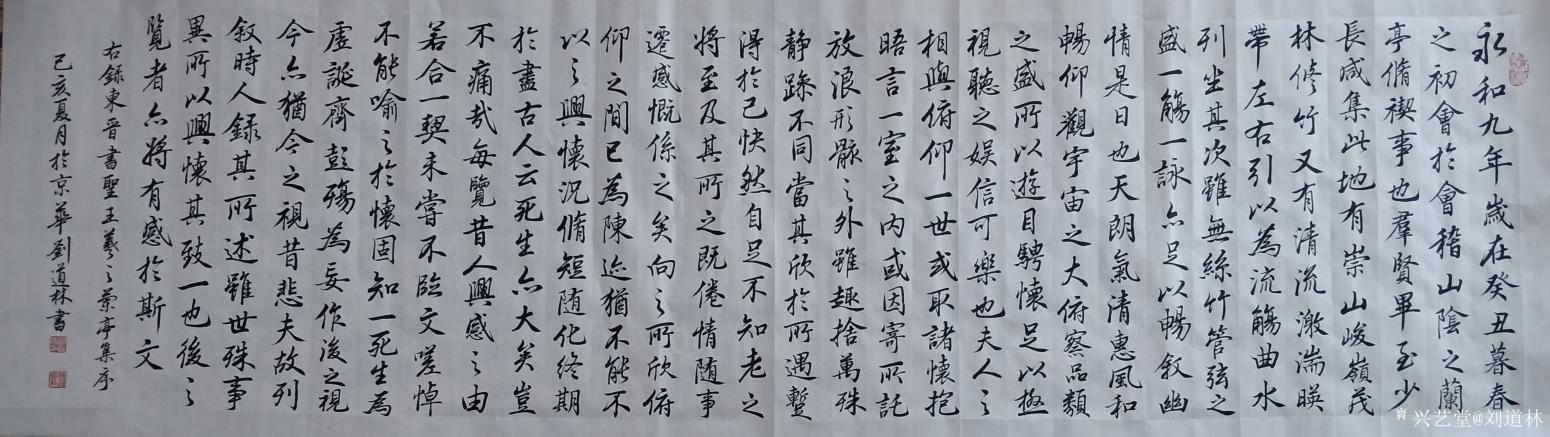 永和九年歲在癸丑暮春
之初會於會稽山陰之蘭
亭脩稧事也羣賢畢至少
長咸集此地有崇山峻嶺茂
林修竹又有清流激湍暎
帶左右引以為流觴曲水
列坐其次雖無絲竹管弦之
盛一觴一詠亦足以暢敘幽
情是日也天朗氣清惠風和
暢仰觀宇宙之大俯察品類
之盛所以遊目騁懷足以極
視聽之娛信可樂也夫人之
相與俯仰一世或取諸懷抱
晤言一室之內或因寄所託
放浪形骸之外雖趣捨萬殊
静躁不同當其欣於所遇蹔
得於己快然自足不知老之
將至及其所之既倦情随事
遷感慨係之矣向之所欣俯
仰之間已為陳迹猶不能不
以之興懷況脩短随化終期
於盡古人云死生亦大矣豈
不痛哉每覽昔人興感之由
若合一契未嘗不臨文嗟悼
不能喻之於懷固知一死生為
虛誕齊彭殤為妄作後之視
今亦猶今之視昔悲夫故列
敘時人錄其所述雖世殊事
異所以興懷其致一也後之
覽者亦將有感於斯文
右錄東晉書聖王羲之蘭亭集序
己亥夏月於京華劉道林書
兴艺堂@刘道林